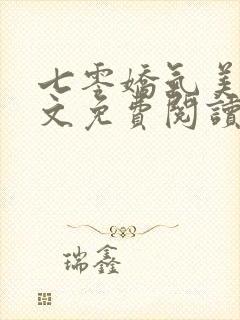 七零嬌氣美
文免費閱讀
瑞鑫